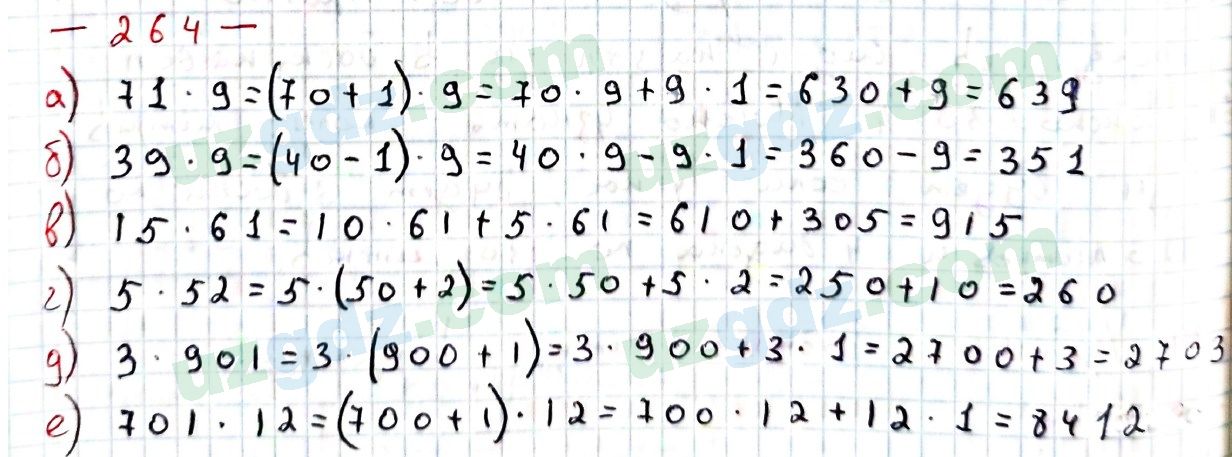 — 264 —
а) 71 · 9 = (70 + 1) · 9 = 70 · 9 + 9 · 1 = 630 + 9 = 639
б) 39 · 9 = (40 - 1) · 9 = 40 · 9 - 9 · 1 = 360 - 9 = 351
в) 15 · 61 = 10 · 61 + 5 · 61 = 610 + 305 = 915
г) 5 · 52 = 5 · (50 + 2) = 5 · 50 + 5 · 2 = 250 + 10 = 260
д) 3 · 901 = 3 · (900 + 1) = 3 · 900 + 3 · 1 = 2700 + 3 = 2703
е) 701 · 12 = (700 + 1) · 12 = 700 · 12 + 12 · 1 = 8412
uzgdz.com uzgdz.com
uzgdz.com uzgdz.com